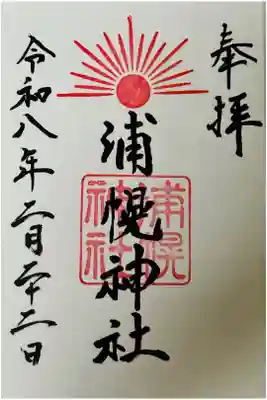 奉拝
浦幌神社
浦幌神社
令和八年二月二十二日